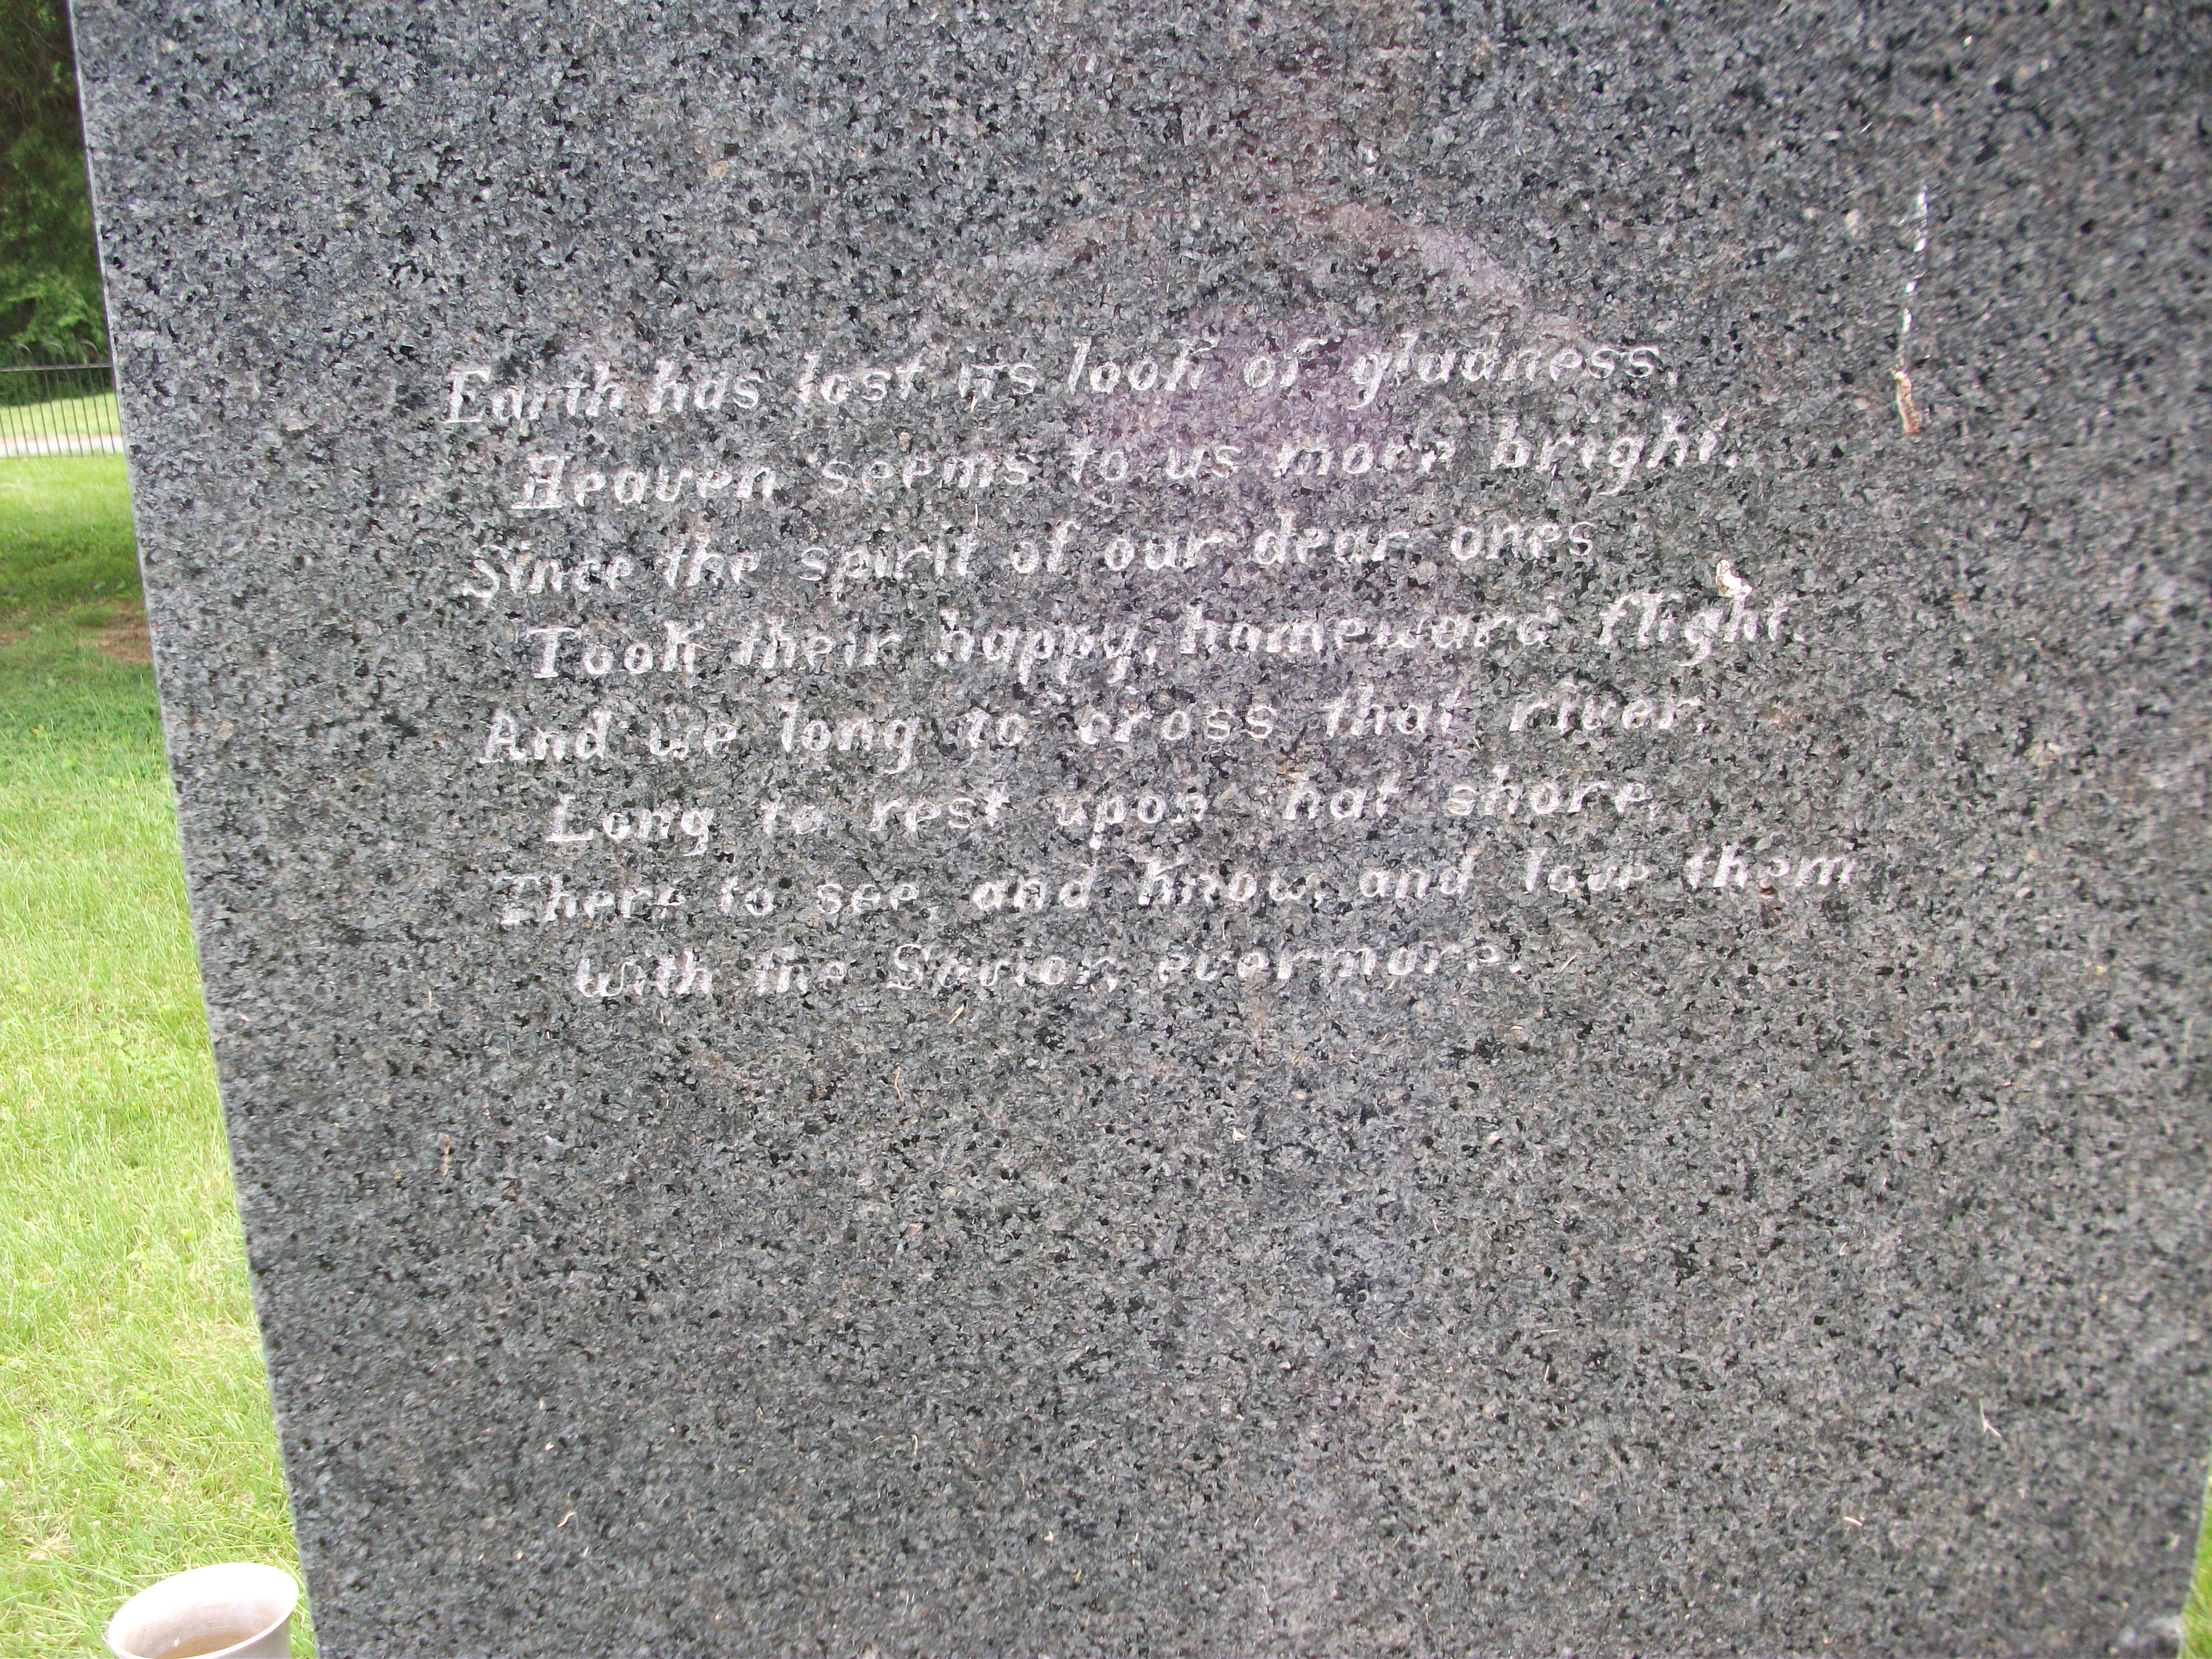 Earth has lost its look of gladness,
Heaven seems to us more bright,
Since the spirit of our dear ones
Took their happy, homeward flight.
And we long to cross that river,
Long to rest upon that shore,
There to see, and know, and love them
With the Savior, evermore.